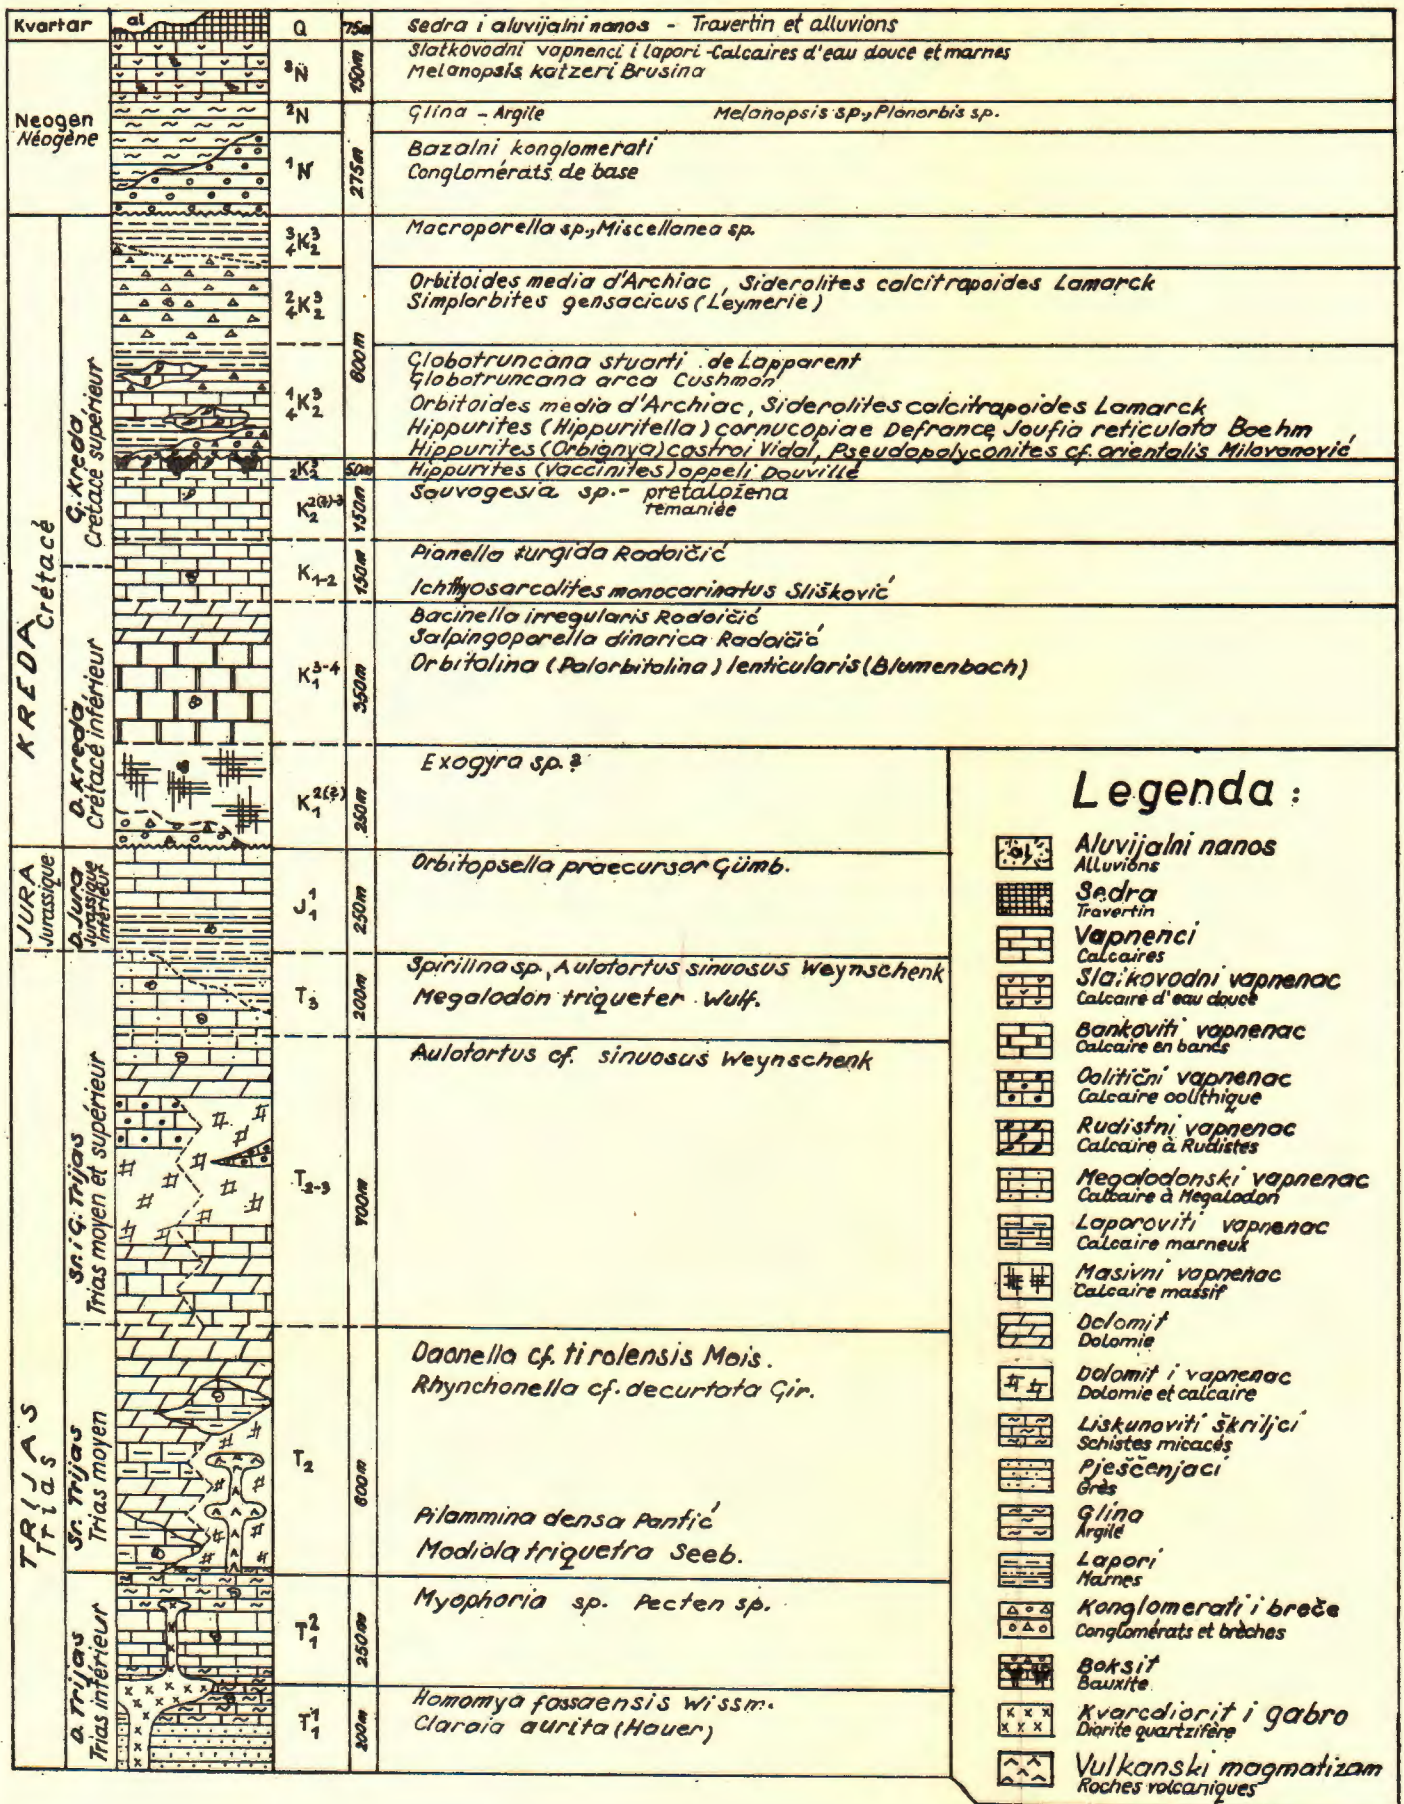 Kvartar
al
Q
75m
Sedra i aluvijalni nanos - Travertin et alluvions
Neogen
Néogène
³N
150m
Slatkovodni vapnenci i lapori - Calcaires d'eau douce et marnes
Melanopsis katzeri Brusina
²N
Glina - Argile
Melanopsis sp., Planorbis sp.
¹N
275m
Bazalni konglomerati
Conglomérats de base
KREDA
Crétacé
G. Kreda
Crétacé supérieur
³₄K³₂
Macroporella sp., Miscellanea sp.
²₄K³₂
600m
Orbitoides media d'Archiac, Siderolites calcitrapoides Lamarck
Simplorbites gensacicus (Leymerie)
¹₄K³₂
Globotruncana stuarti de Lapparent
Globotruncana arca Cushman
Orbitoides media d'Archiac, Siderolites calcitrapoides Lamarck
Hippurites (Hippuritella) cornucopiae Defrance, Joufia reticulata Boehm
Hippurites (Orbignya) castroi Vidal, Pseudopolyconites cf. orientalis Milovanović
₂K³₂
50m
Hippurites (Vaccinites) oppeli Douvillé
K₂²⁽?⁾⁻³
150m
Sauvagesia sp. - pretaložena
remaniée
K₁₋₂
150m
Pianella turgida Radoičić
Ichthyosarcolites monocarinatus Slišković
D. Kreda
Crétacé inférieur
K₁³⁻⁴
350m
Bacinella irregularis Radoičić
Salpingoporella dinarica Radoičić
Orbitolina (Palorbitolina) lenticularis (Blumenbach)
K₁²⁽?⁾
250m
Exogyra sp.?
JURA
Jurassique
D. Jura
Jurassique
inférieur
J₁¹
250m
Orbitopsella praecursor Gümb.
TRIJAS
Trias
Sr. i G. Trijas
Trias moyen et supérieur
T₃
200m
Spirilina sp., Aulotortus sinuosus Weynschenk
Megalodon triqueter Wulf.
T₂₋₃
700m
Aulotortus cf. sinuosus Weynschenk
Sr. Trijas
Trias moyen
T₂
600m
Daonella cf. tirolensis Mojs.
Rhynchonella cf. decurtata Gir.
Pilammina densa Pantić
Modiola triquetra Seeb.
D. Trijas
Trias inférieur
T₁²
250m
Myophoria sp. Pecten sp.
T₁¹
200m
Homomya fassaensis Wissm.
Claraia aurita (Hauer)
Legenda :
al
Aluvijalni nanos
Alluvions
Sedra
Travertin
Vapnenci
Calcaires
Slatkovodni vapnenac
Calcaire d'eau douce
Bankoviti vapnenac
Calcaire en bancs
Oolitični vapnenac
Calcaire oolithique
Rudistni vapnenac
Calcaire à Rudistes
Megalodonski vapnenac
Calcaire à Megalodon
Laporoviti vapnenac
Calcaire marneux
Masivni vapnenac
Calcaire massif
Dolomit
Dolomie
Dolomit i vapnenac
Dolomie et calcaire
Liskunoviti škriljci
Schistes micacés
Pješčenjaci
Grès
Glina
Argile
Lapori
Marnes
Konglomerati i breče
Conglomérats et brèches
Boksit
Bauxite
Kvarcdiorit i gabro
Diorite quartzifère
Vulkanski magmatizam
Roches volcaniques